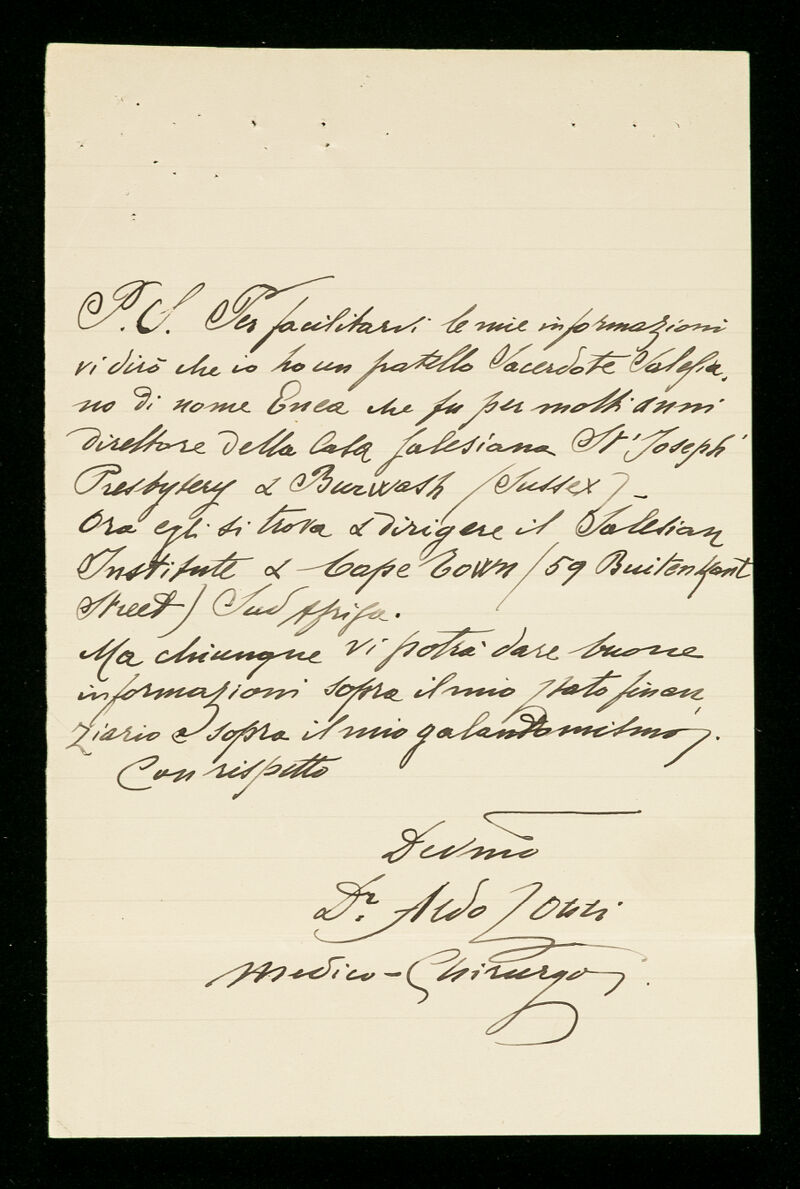 P. S. Per facilitarvi le mie informazioni
vi dirò che io ho un fratello Sacerdote Salesia,
no di nome Enea che fu per molti anni
direttore della Casa Salesiana St Joseph
Presbytery a Burwash (Sussex)_
Ora egli si trova a dirigere il Salesian
Institute a Cape Town (59 Buitenkant
Street) Sud Afrifa.
Ma chiunque vi potrà dare buone
informazioni sopra il mio stato finan,
ziario e sopra il mio galandomismo.
Con rispetto
Devmo
Dr. Aldo
Medico-Chirurgo.